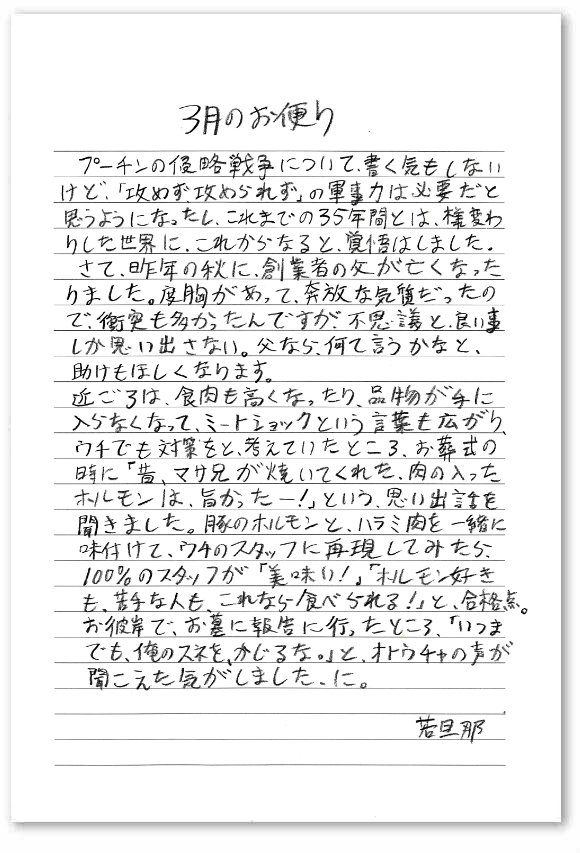 3月のお便り
プーチンの侵略戦争について、書く気もしない
けど、「攻めず攻められず」の軍事力は必要だと
思うようになったし、これまでの35年間とは、様変わ
りした世界に、これからなると、覚悟はしました。
さて、昨年の秋に、創業者の父が亡くなった
りました。度胸があって、奔放な気質だったの
で、衝突も多かったんですが、不思議と、良い事
しか思い出さない。父なら、何て言うかなと、
助けもほしくなります。
近ごろは、食肉も高くなったり、品物が手に
入らなくなって、ミートショックという言葉も広がり、
ウチでも対策をと、考えていたところ、お葬式の
時に「昔、マサ兄が焼いてくれた、肉の入った
ホルモンは、旨かったー!」という、思い出話を
聞きました。豚のホルモンと、ハラミ肉を一緒に
味付けて、ウチのスタッフに再現してみたら、
100%のスタッフが「美味い!」「ホルモン好き
も、苦手な人も、これなら食べられる!」と、合格点。
お彼岸で、お墓に報告に行ったところ、「いつま
でも、俺のスネを、かじるな。」と、オトウチャの声が
聞こえた気がしました、に。
若旦那